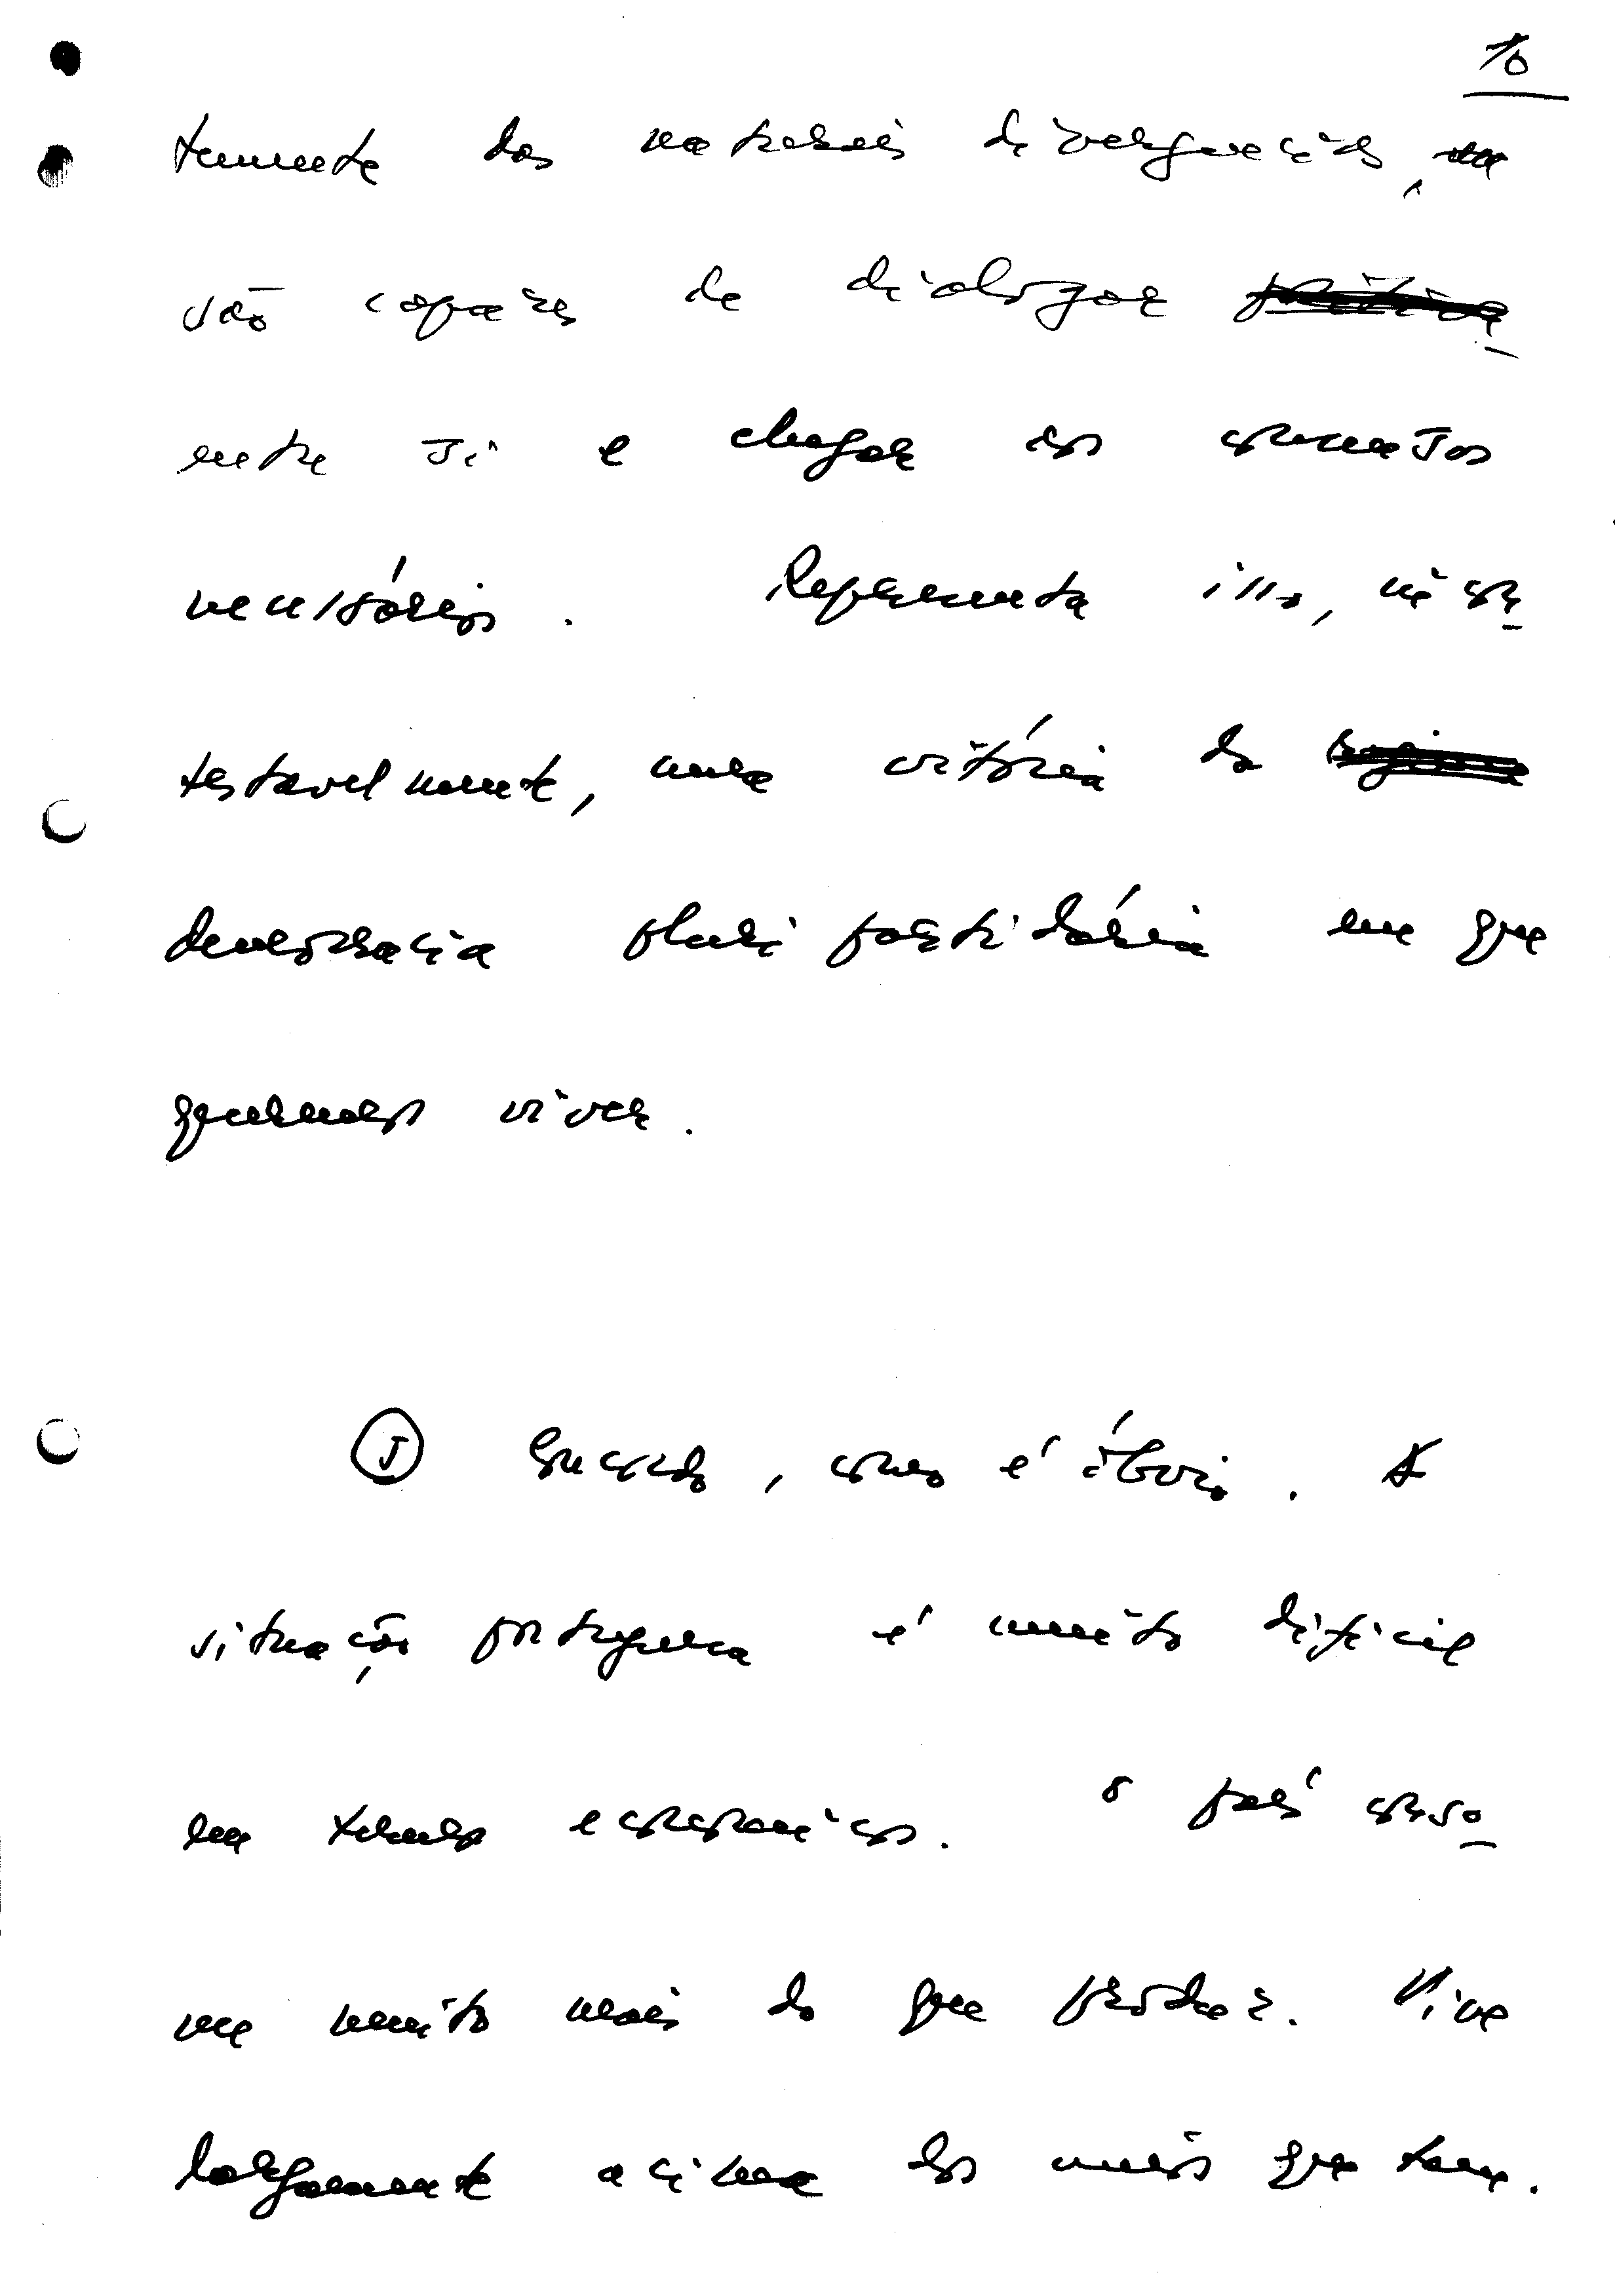 10
temente das naturais divergências,
são capazes de dialogar
entre si e chegar aos consensos
necessários. Representa isso, incon
testavelmente, uma vitória da
democracia pluripartidária em que
queremos viver.
J , como é óbvio. A
situação portuguesa é muito difícil
em termos económicos. O país conso
me muito mais do que produz. Vive
largamente acima dos meios que tem.